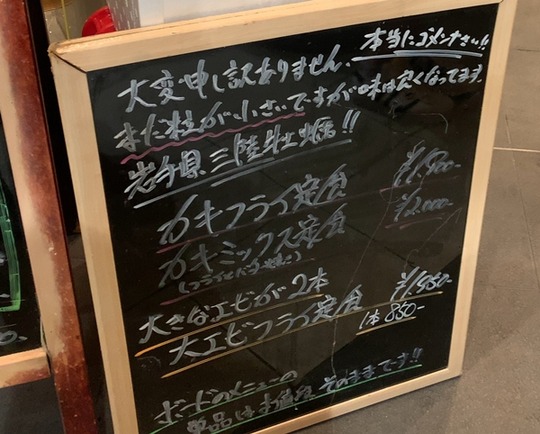 大変申し訳ありません。本当にゴメーナさい!!
まだ粒が小さいですが味は良くなってます。
岩手県三陸牡蠣!!
カキフライ定食 ¥1,900-
カキミックス定食 ¥2,000-
(フライとバター焼き)
大きなエビが2本
大エビフライ定食 ¥1,950-
1本 850-
ボードのメニューの
単品はお値段そのままです!!